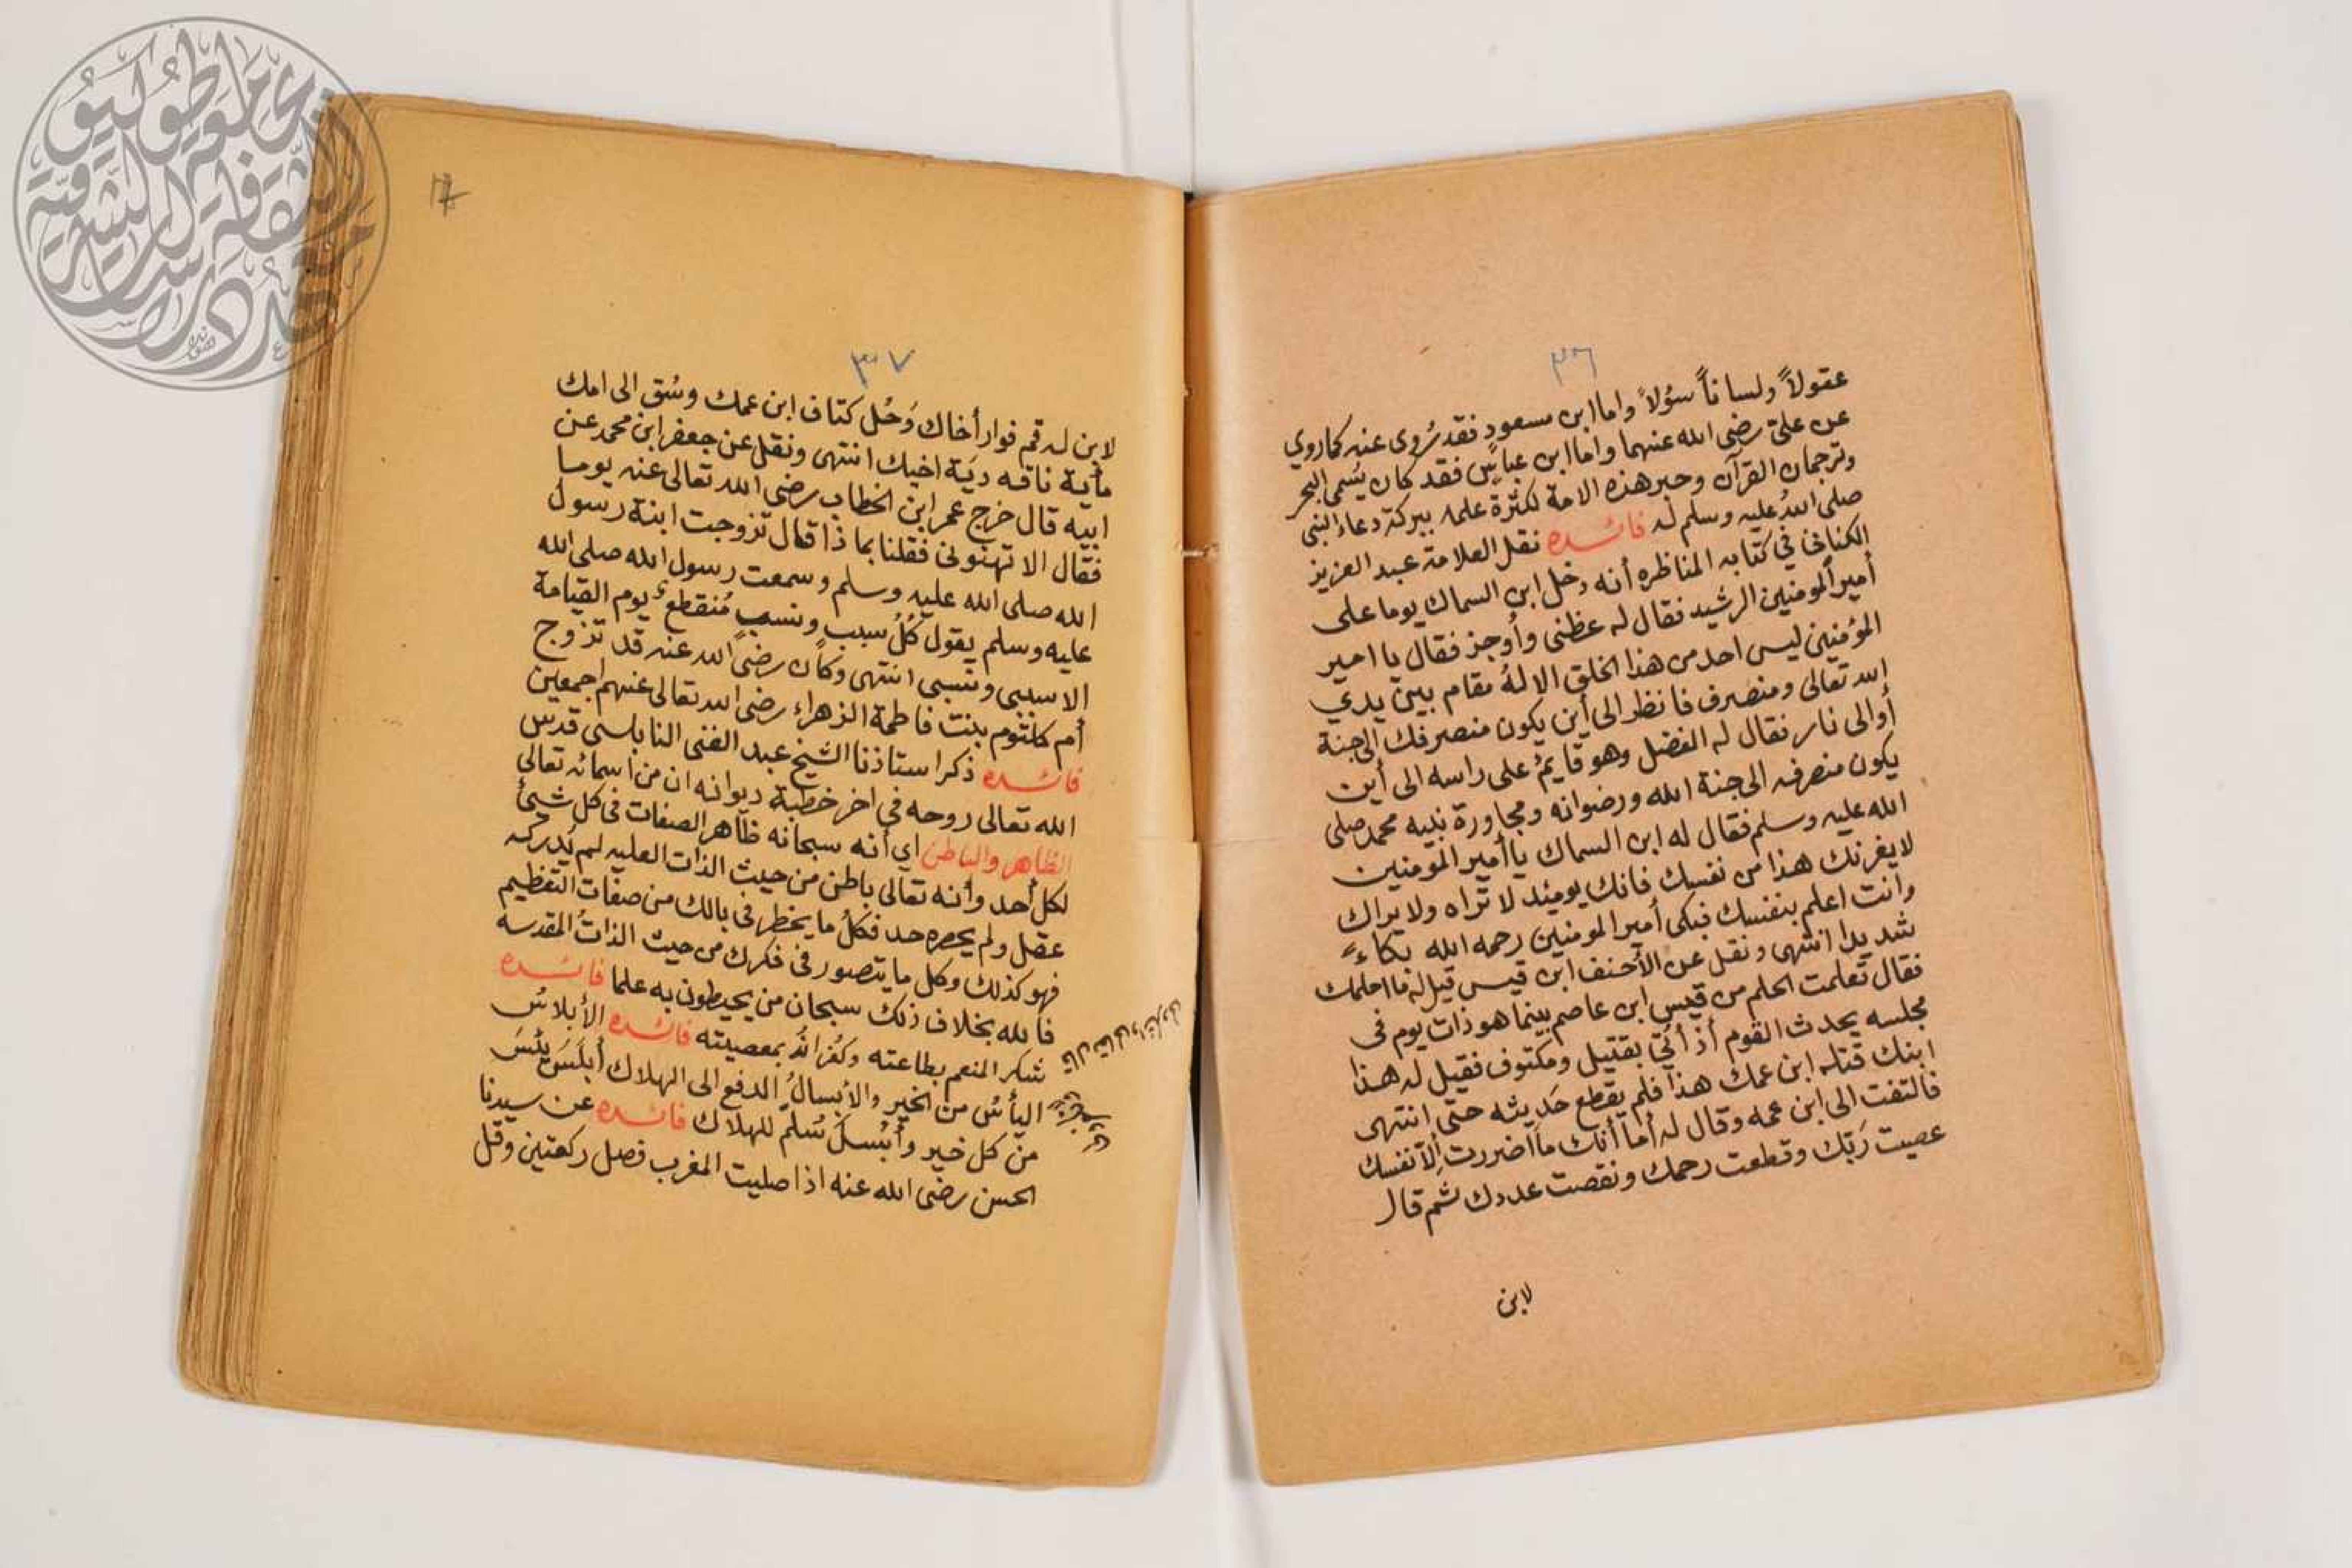 ٣٦
عقولاً ولساناً سؤلاً واما ابن مسعود فقد رُوى عنه كما روي
عن علىّ رضى الله عنهما واما ابن عباسٍ فقد كان يسمى البحر
وترجمان القرآن وحبر هذه الامة لكثرة علمه ببركة دعاء النبى
صلى الله عليه وسلم له فائده نقل العلامة عبد العزيز
الكنانى في كتابه المناظره أنه دخل ابن السماك يوما على
أمير المومنين الرشيد فقال له عظنى وأوجز فقال يا امير
المؤمنين ليس احد من هذا الخلق الا لهُ مقام بين يدي
الله تعالى ومنصرف فانظر الى أين يكون منصرفك الى جنة
أوالى نار فقال له الفضل وهو قايمُ على راسه الى أين
يكون منصرفه الى جنة الله ورضوانه ومجاورة نبيه محمد صلى
الله عليه وسلم فقال له ابن السماك يا أمير المومنين
لا يغرنك هذا من نفسك فانك يومئذ لا تراه ولا يراك
وانت اعلم بنفسك فبكى أمير المومنين رحمه الله بكاءً
شديدا انتهى ونقل عن الأحنف ابن قيس قيل له ما احلمك
فقال تعلمت الحلم من قيس ابن عاصم بينما هو ذات يوم فى
مجلسه يحدث القوم أذ أتي بقتيل ومكتوف فقيل له هذا
ابنك قتله ابن عمك هذا فلم يقطع حديثه حتى انتهى
فالتفت الى ابن عمه وقال له أما أنك ما اضررت إلا نفسك
عصيت ربّك وقطعت رحمك ونقصت عددك ثم قال
لابن
١٧
٣٧
لابن له قم فوار أخاك وَحُل كتاف ابن عمك وسُق الى امك
مأية ناقه ديَة اخيك انتهى ونقل عن جعفر ابن محمد عن
ابيه قال خرج عمر ابن الخطاب رضى الله تعالى عنه يوما
فقال الا تهنونى فقلنا بما ذا قال تزوجت ابنة رسول
الله صلى الله عليه وسلم وسمعت رسول الله صلى الله
عليه وسلم يقول كُلُ سبب ونسب مُنقطع يوم القيامة
الا سببى ونسبى انتهى وكان رضى الله عنه قد تزوج
أم كلثوم بنت فاطمة الزهراء رضى الله تعالى عنهم اجمعين
فائده ذكر استاذنا الشيخ عبد الغنى النابلسى قدس
الله تعالى روحه في اخر خطبة ديوانه ان من اسمائه تعالى
الظاهر والباطن اي أنه سبحانه ظاهر الصفات فى كل شيئ
لكل أحد وأنه تعالى باطن من حيث الذات العليه لم يُدركه
عقل ولم يحصره حد فكلُ ما يخطر فى بالك من صفات التعظيم
فهو كذلك وكل ما يتصور فى فكرك من حيث الذات المقدسه
فالله بخلاف ذلك سبحان من يحيطون به علما فائده
شكر المنعم بطاعته وكفرانُه بمعصيته فائده الأبلاسُ
اليأسُ من الخير والأبسالُ الدفع الى الهلاك أبلَسَ يئسَ
من كل خير وأبسلَ سُلّم للهلاك فائده عن سيدنا
الحسن رضى الله عنه اذا صليت المغرب فصل ركعتين وقل